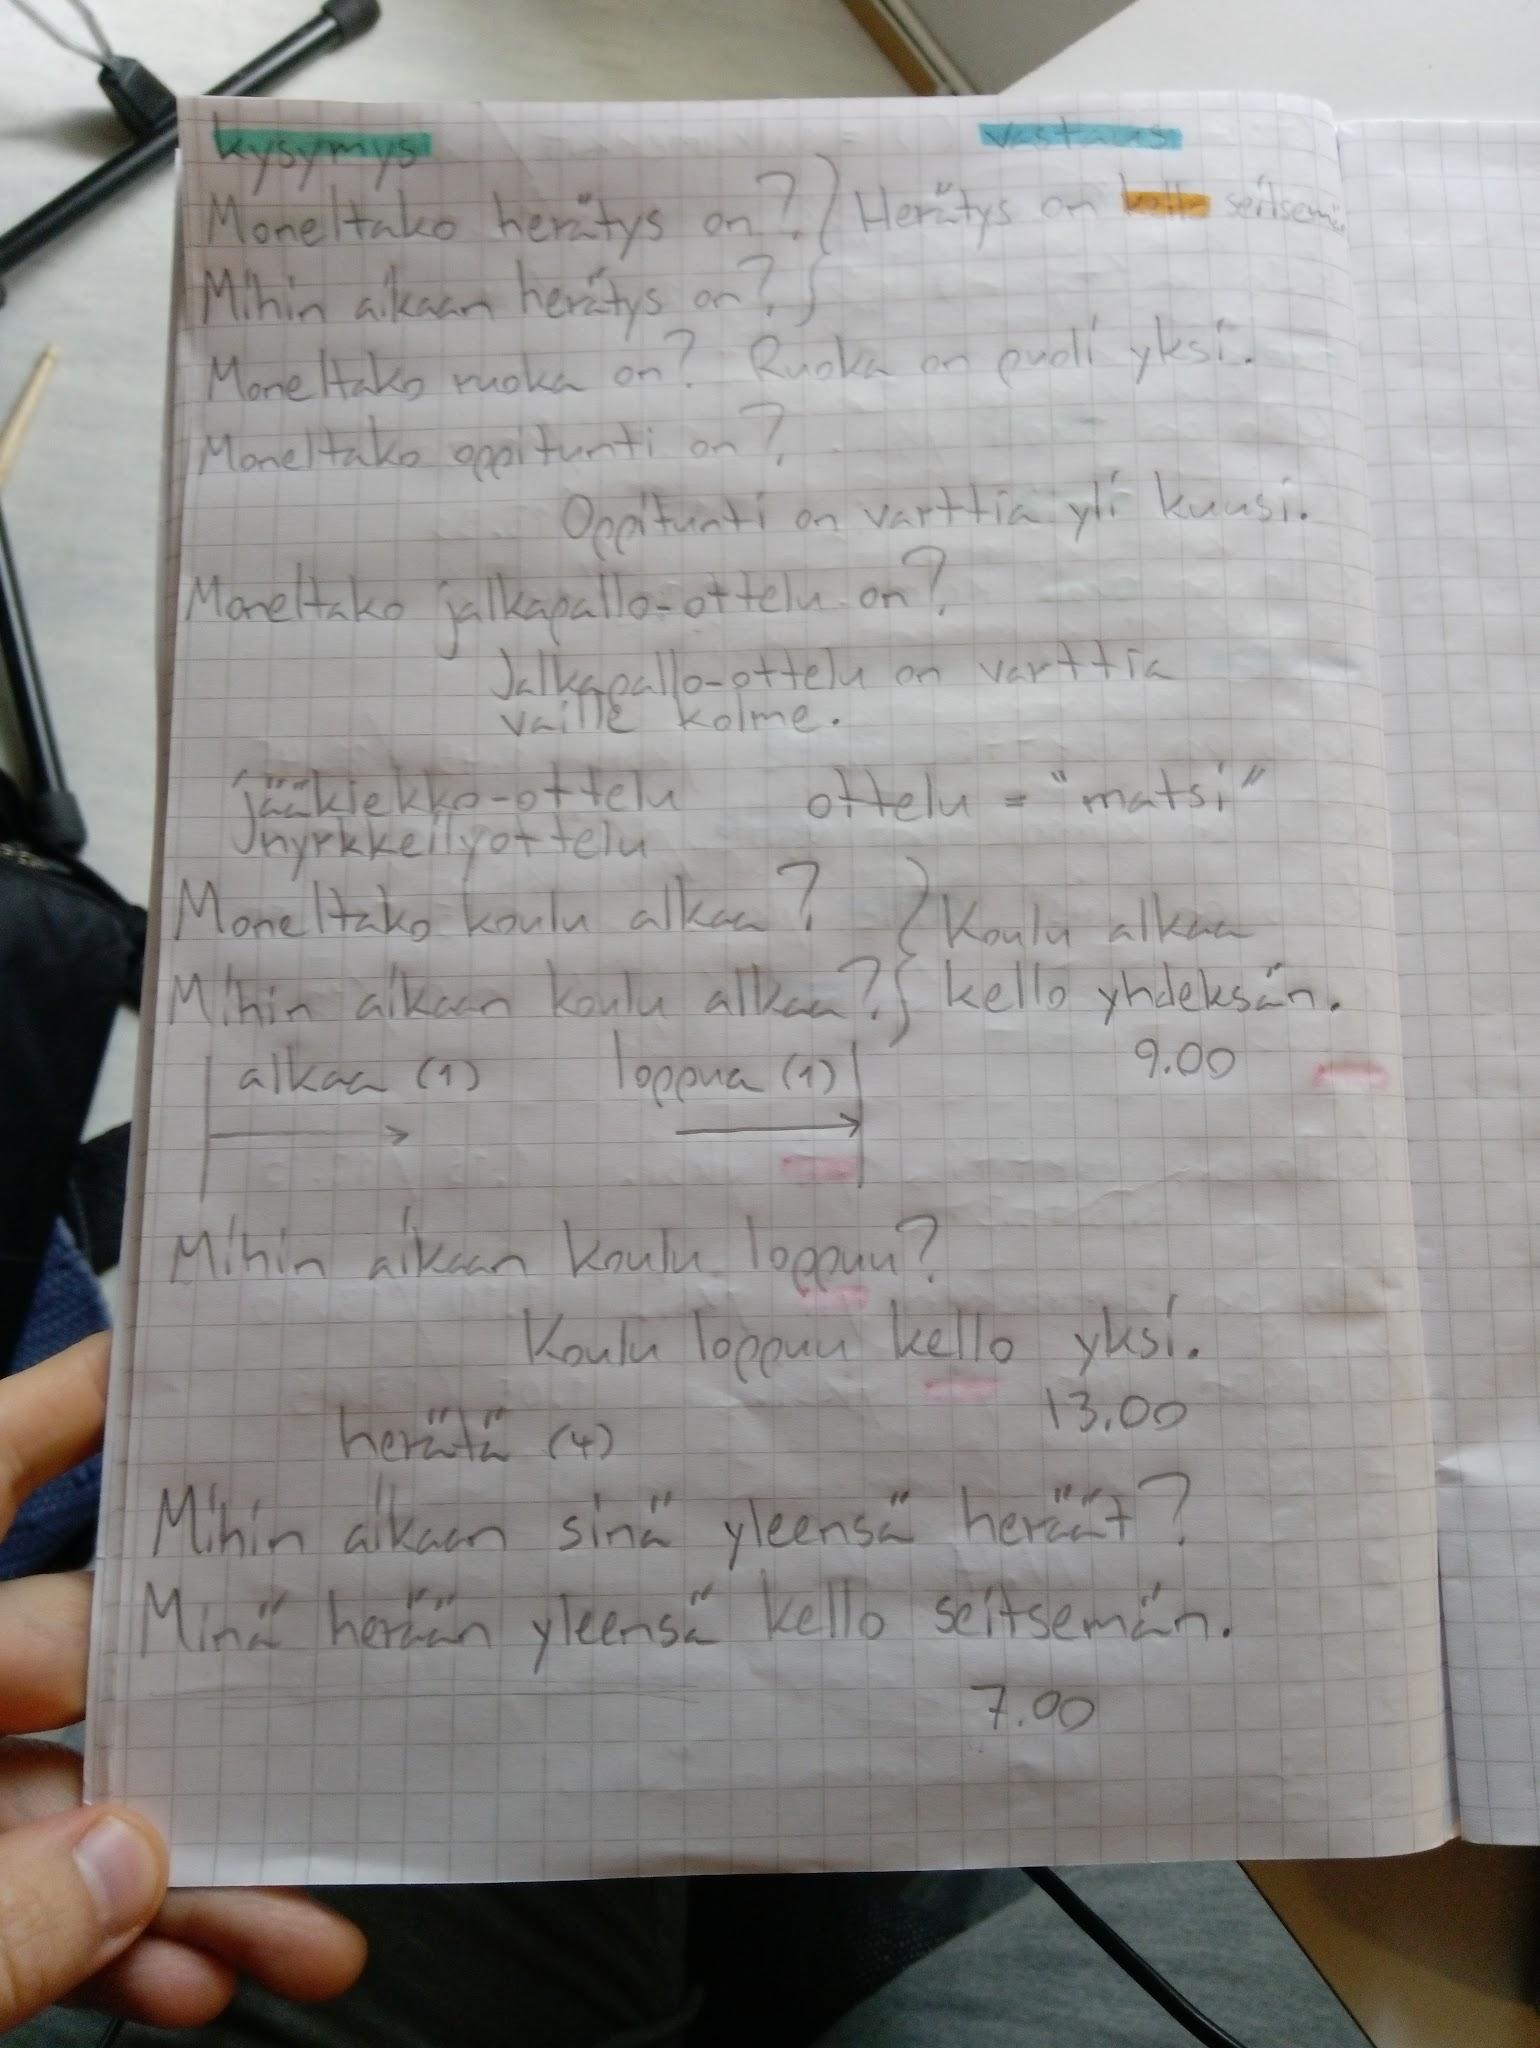 kysymys vastaus
Moneltako herätys on? Herätys on kello seitsemän.
Mihin aikaan herätys on?
Moneltako ruoka on? Ruoka on puoli yksi.
Moneltako oppitunti on?
Oppitunti on varttia yli kuusi.
Moneltako jalkapallo-ottelu on?
Jalkapallo-ottelu on varttia
vaille kolme.
jääkiekko-ottelu ottelu = "matsi"
nyrkkeilyottelu
Moneltako koulu alkaa? Koulu alkaa
Mihin aikaan koulu alkaa? kello yhdeksän.
alkaa (1) loppua (1) 9.00
Mihin aikaan koulu loppuu?
Koulu loppuu kello yksi.
herätä (4) 13.00
Mihin aikaan sinä yleensä heräät?
Minä herään yleensä kello seitsemän.
7.00